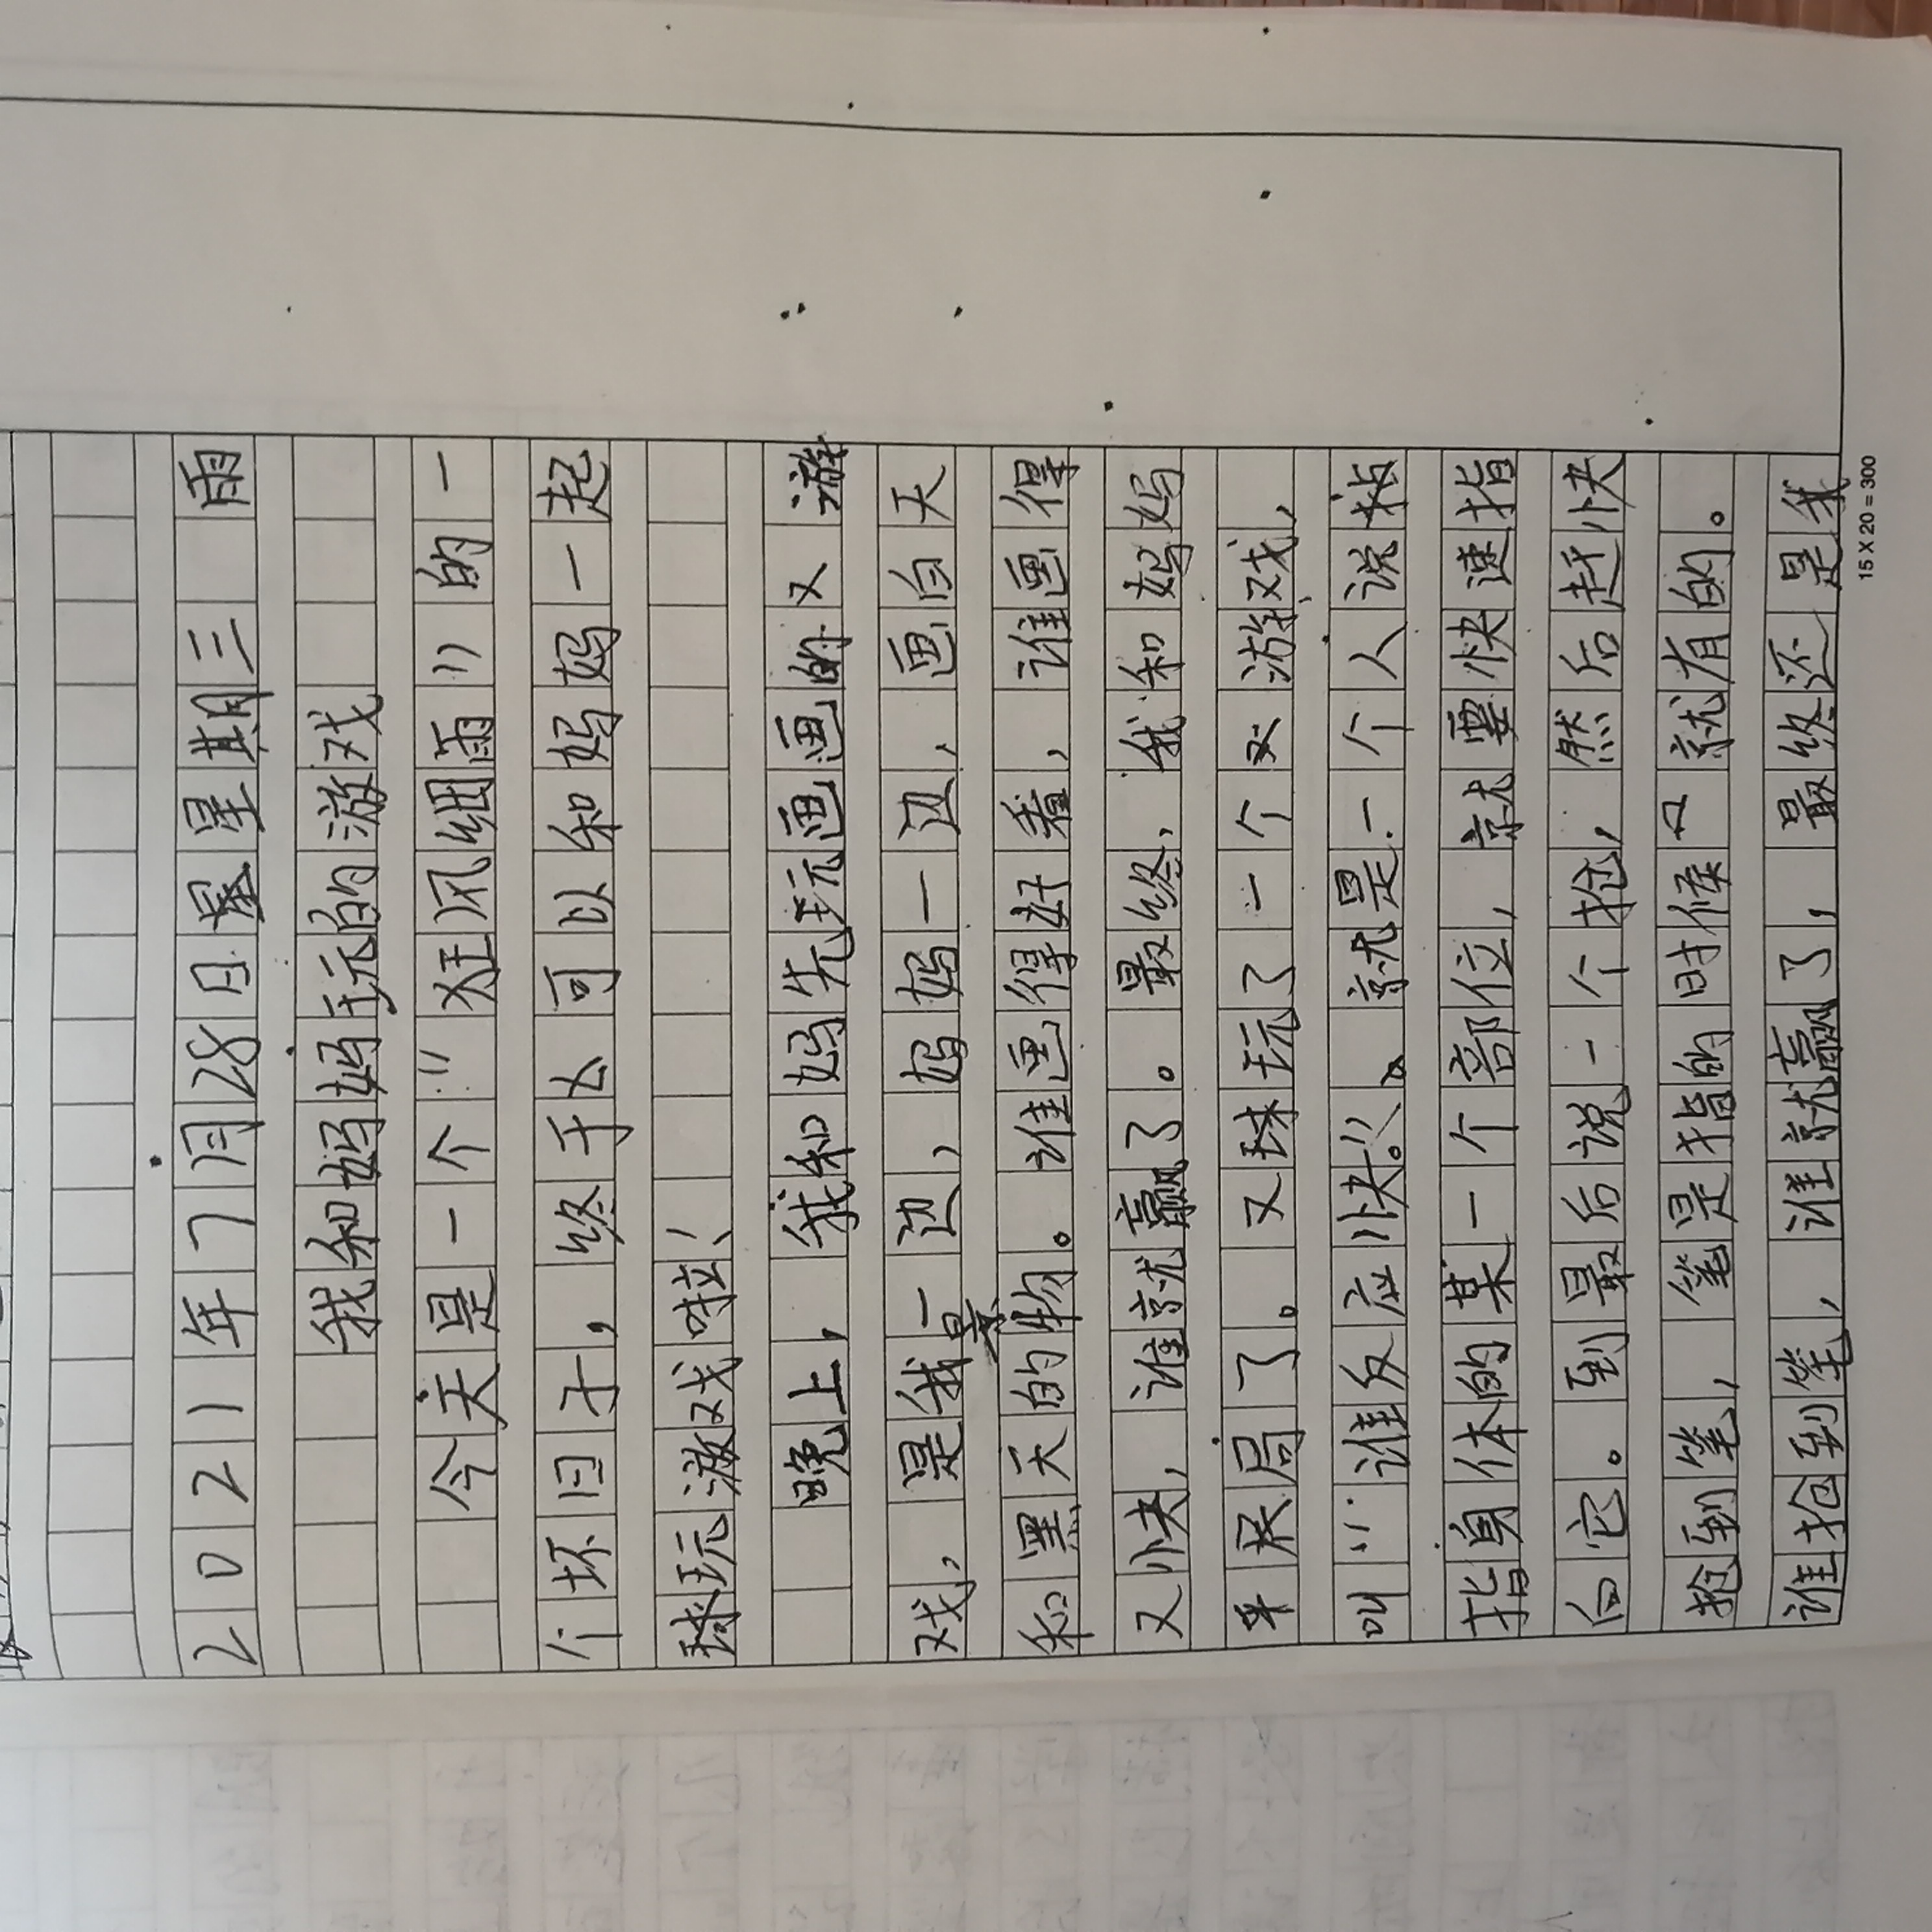 2021年7月28日星期三 雨
我和妈妈玩的游戏
今天是一个“狂风细雨”的一
个坏日子，终于可以和妈妈一起
玩游戏啦！
晚上，我和妈妈先玩画画的游
戏，是我一边，妈妈一边，画白天
和黑天的景物。谁画得好看，谁画得
又快，谁就赢了。最终，我和妈妈
平局了。又玩了一个游戏，
叫：“谁反应快！”就是一个人说
指身体的某一个部位，就要快速指
向它。到最后说一个抢，然后赶快
抢到笔，笔是指的时候就有的。
谁抢到笔，谁就赢了，最终还是我
15X20=300